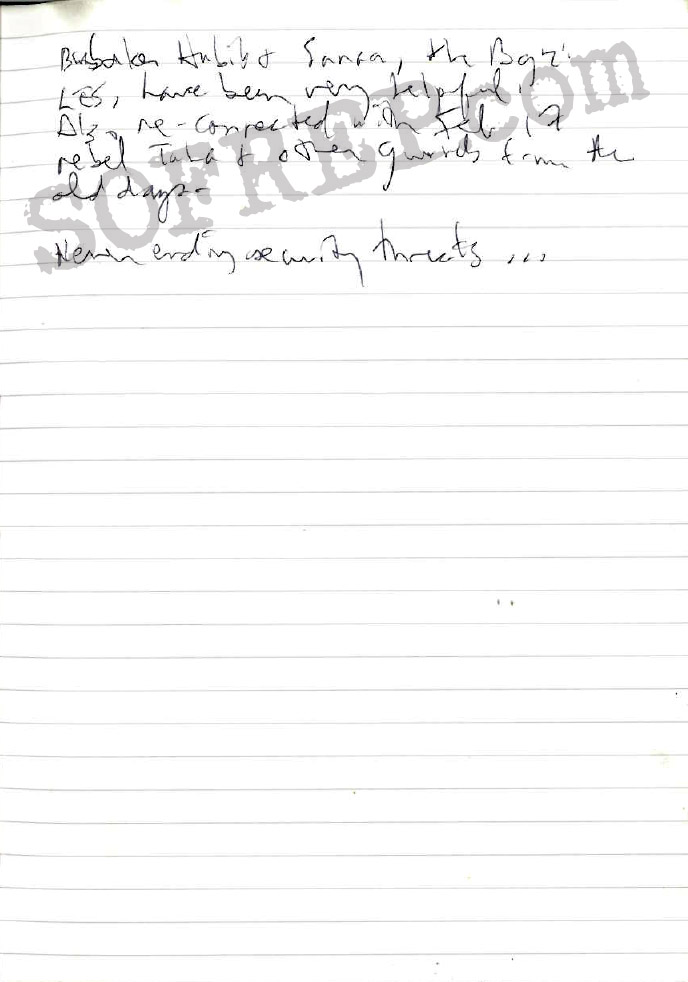 Bubaker Habib & Sansa, the Bgzi
LES, have been very helpful.
Also re-connected with Feb 17
rebel Taha & other guards from the
old days.
Never ending security threats ...
SOFREP.com